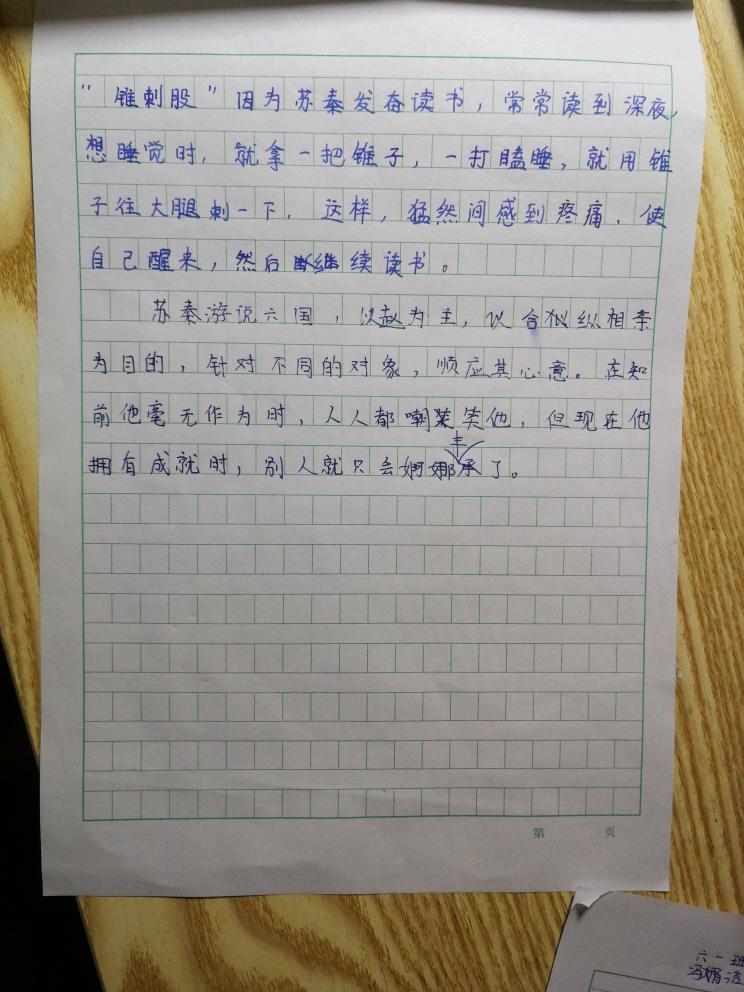 “锥刺股”因为苏秦发奋读书，常常读到深夜，
想睡觉时，就拿一把锥子，一打瞌睡，就用锥
子往大腿刺一下，这样，猛然间感到疼痛，使
自己醒来，然后继续读书。
苏秦游说六国，以赵为主，以合纵相亲
为目的，针对不同的对象，顺应其心意。在知
前他毫无作为时，人人都嘲笑他，但现在他
拥有成就时，别人就只会婀娜奉承了。
第 页
六一班
冯娟洁